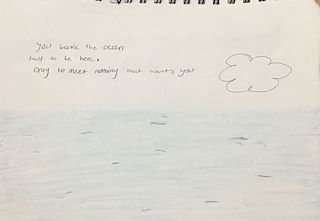 You broke the ocean
half to be here.
Only to meet nothing that wants you